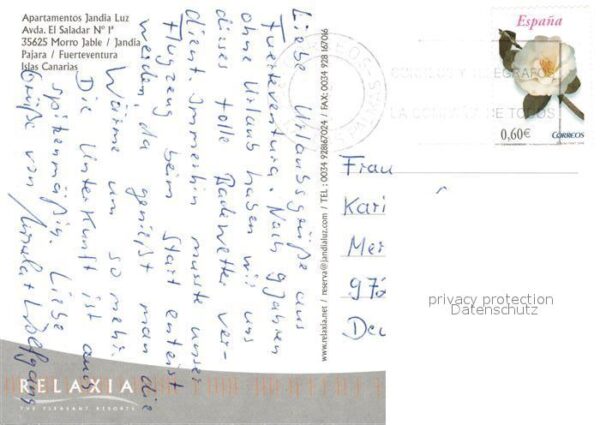 Apartamentos Jandia Luz
Avda. El Saladar Nº 1ª
35625 Morro Jable / Jandia
Pajara / Fuerteventura
Islas Canarias
Liebe Urlaubsgrüße aus
Fuerteventura. Nach 9 Jahren
ohne Urlaub haben wir uns
dieses tolle Badewetter ver-
dient. Immerhin musste unser
Flugzeug beim Start enteist
werden, da genießt man die
Wärme um so mehr.
Die Unterkunft ist auch
spitzenmäßig. Liebe
Grüße von Ursula + Wolfgang
www.relaxia.net / reserva@jandialuz.com / TEL: 0034 92867024 / FAX: 0034 928167016
RELAXIA
THE PLEASANT RESORTS
CORREOS
CORREOS Y TELEGRAFOS
LA COMPAÑIA DE TODOS
España
0,60€
CORREOS
Frau
Kari
Mei
97
Deu
privacy protection
Datenschutz